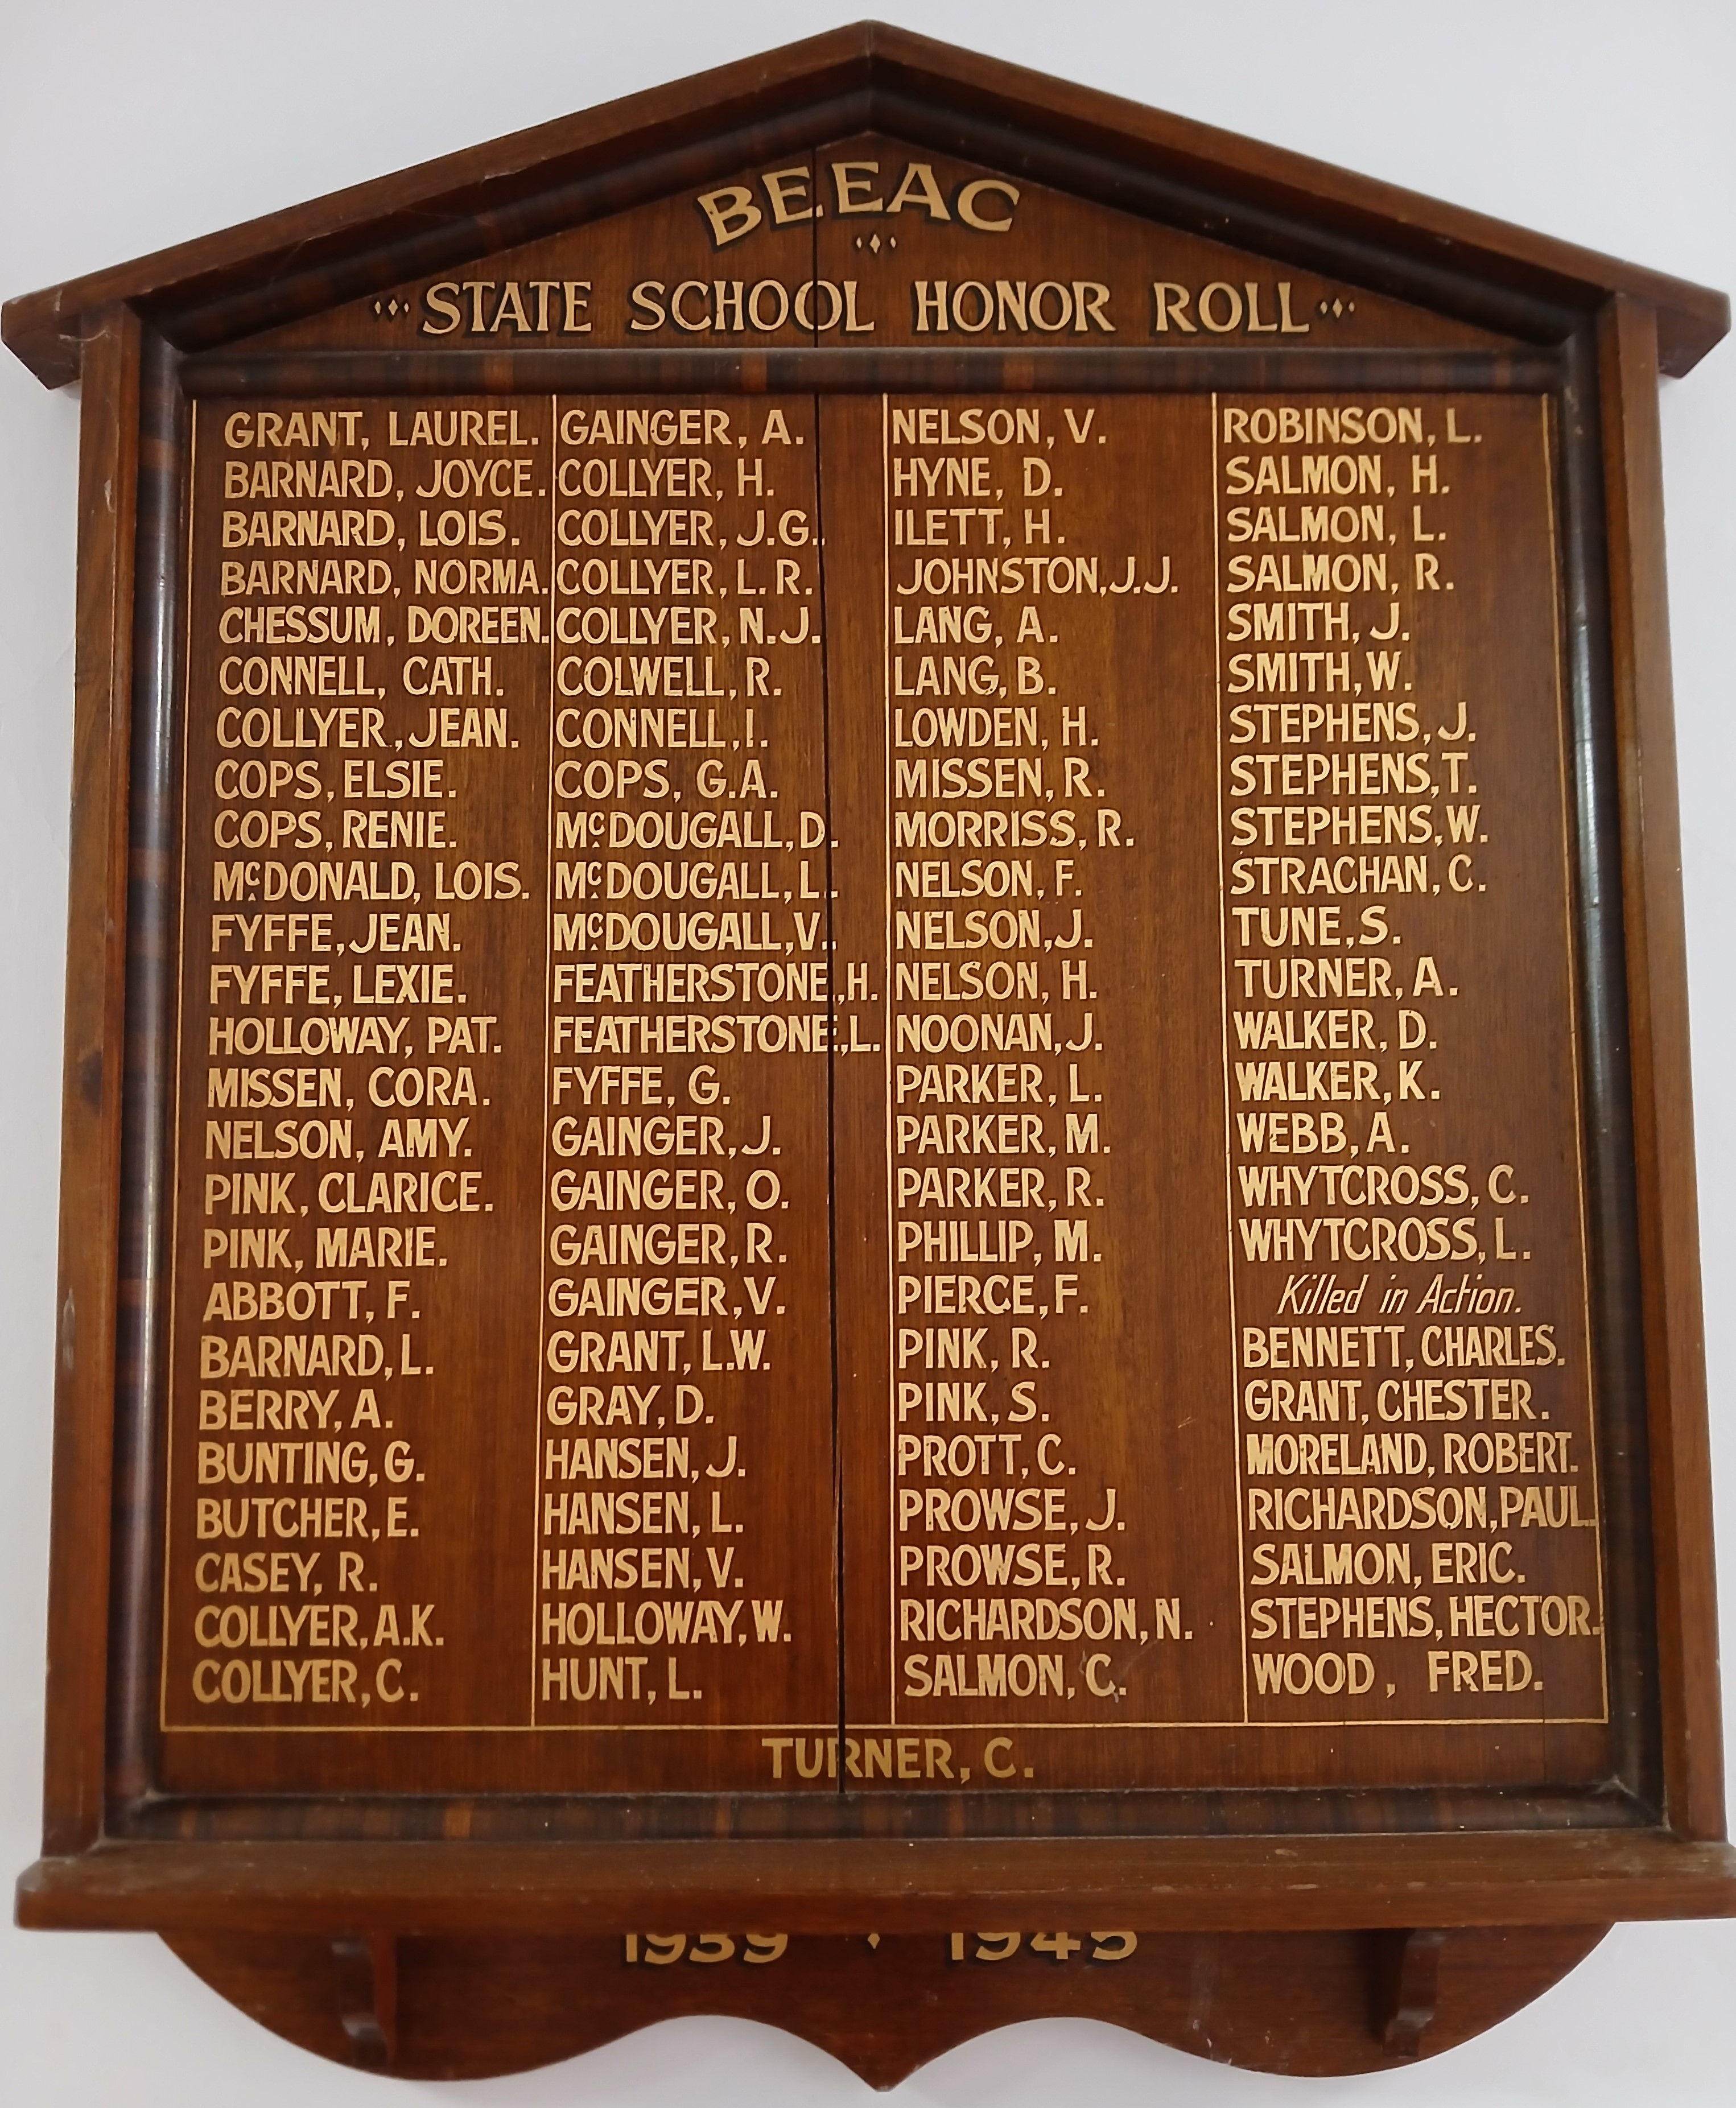 BEEAC
STATE SCHOOL HONOR ROLL
GRANT, LAUREL.
BARNARD, JOYCE.
BARNARD, LOIS.
BARNARD, NORMA.
CHESSUM, DOREEN.
CONNELL, CATH.
COLLYER, JEAN.
COPS, ELSIE.
COPS, RENIE.
McDONALD, LOIS.
FYFFE, JEAN.
FYFFE, LEXIE.
HOLLOWAY, PAT.
MISSEN, CORA.
NELSON, AMY.
PINK, CLARICE.
PINK, MARIE.
ABBOTT, F.
BARNARD, L.
BERRY, A.
BUNTING, G.
BUTCHER, E.
CASEY, R.
COLLYER, A.K.
COLLYER, C.
GAINGER, A.
COLLYER, H.
COLLYER, J.G.
COLLYER, L.R.
COLLYER, N.J.
COLWELL, R.
CONNELL, I.
COPS, G.A.
McDOUGALL, D.
McDOUGALL, L.
McDOUGALL, V.
FEATHERSTONE, H.
FEATHERSTONE, L.
FYFFE, G.
GAINGER, J.
GAINGER, O.
GAINGER, R.
GAINGER, V.
GRANT, L.W.
GRAY, D.
HANSEN, J.
HANSEN, L.
HANSEN, V.
HOLLOWAY, W.
HUNT, L.
NELSON, V.
HYNE, D.
ILETT, H.
JOHNSTON, J.J.
LANG, A.
LANG, B.
LOWDEN, H.
MISSEN, R.
MORRISS, R.
NELSON, F.
NELSON, J.
NELSON, H.
NOONAN, J.
PARKER, L.
PARKER, M.
PARKER, R.
PHILLIP, M.
PIERCE, F.
PINK, R.
PINK, S.
PROTT, C.
PROWSE, J.
PROWSE, R.
RICHARDSON, N.
SALMON, C.
ROBINSON, L.
SALMON, H.
SALMON, L.
SALMON, R.
SMITH, J.
SMITH, W.
STEPHENS, J.
STEPHENS, T.
STEPHENS, W.
STRACHAN, C.
TUNE, S.
TURNER, A.
WALKER, D.
WALKER, K.
WEBB, A.
WHYTCROSS, C.
WHYTCROSS, L.
Killed in Action.
BENNETT, CHARLES.
GRANT, CHESTER.
MORELAND, ROBERT.
RICHARDSON, PAUL.
SALMON, ERIC.
STEPHENS, HECTOR.
WOOD, FRED.
TURNER, C.
1939 1945